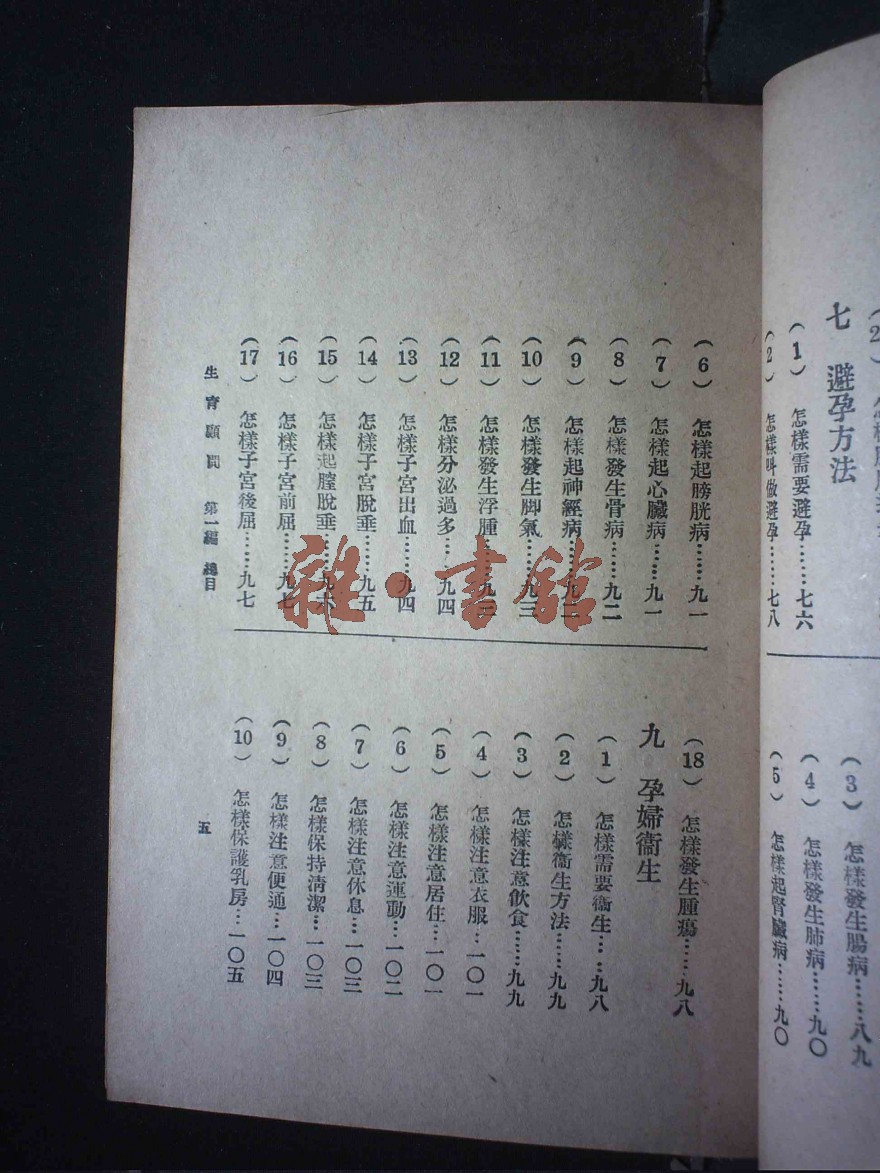 七 避孕方法
(1) 怎樣需要避孕……七六
(2) 怎樣叫做避孕……七八
(3) 怎樣發生腸病……八九
(4) 怎樣發生肺病……九〇
(5) 怎樣起腎臟病……九〇
(6) 怎樣起膀胱病……九一
(7) 怎樣起心臟病……九一
(8) 怎樣發生骨病……九二
(9) 怎樣起神經病……九二
(10) 怎樣發生脚氣……九三
(11) 怎樣發生浮腫……九三
(12) 怎樣分泌過多…九四
(13) 怎樣子宮出血……九四
(14) 怎樣子宮脫垂……九五
(15) 怎樣起膣脫垂……九六
(16) 怎樣子宮前屈……九七
(17) 怎樣子宮後屈……九七
(18) 怎樣發生腫瘍……九八
九 孕婦衞生
(1) 怎樣需要衞生……九八
(2) 怎樣衞生方法……九九
(3) 怎樣注意飲食……九九
(4) 怎樣注意衣服…一〇一
(5) 怎樣注意居住…一〇一
(6) 怎樣注意運動…一〇二
(7) 怎樣注意休息…一〇三
(8) 怎樣保持清潔…一〇三
(9) 怎樣注意便通…一〇四
(10) 怎樣保護乳房…一〇五
生育顧問 第一編 總目
五
雜·書館